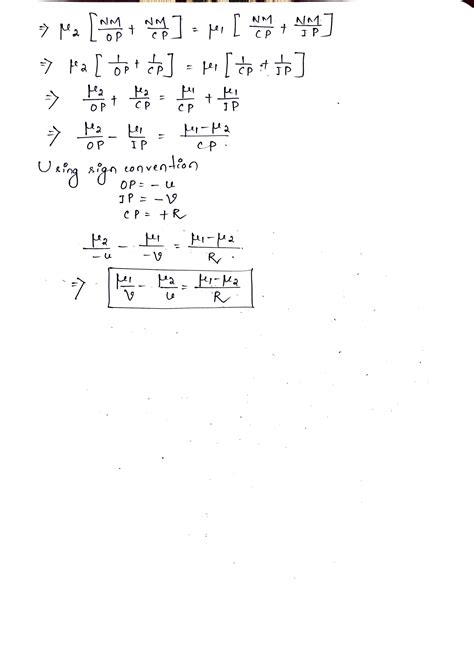 ⇒ μ₂ [NM/OP + NM/CP] = μ₁ [NM/CP + NM/IP]
⇒ μ₂ [1/OP + 1/CP] = μ₁ [1/CP + 1/IP]
⇒ μ₂/OP + μ₂/CP = μ₁/CP + μ₁/IP
⇒ μ₂/OP - μ₁/IP = μ₁-μ₂/CP.
Using sign convention
OP = - u
IP = - V
CP = + R
μ₂/-u - μ₁/-V = μ₁-μ₂/R.
⇒ μ₁/V - μ₂/u = μ₁-μ₂/R